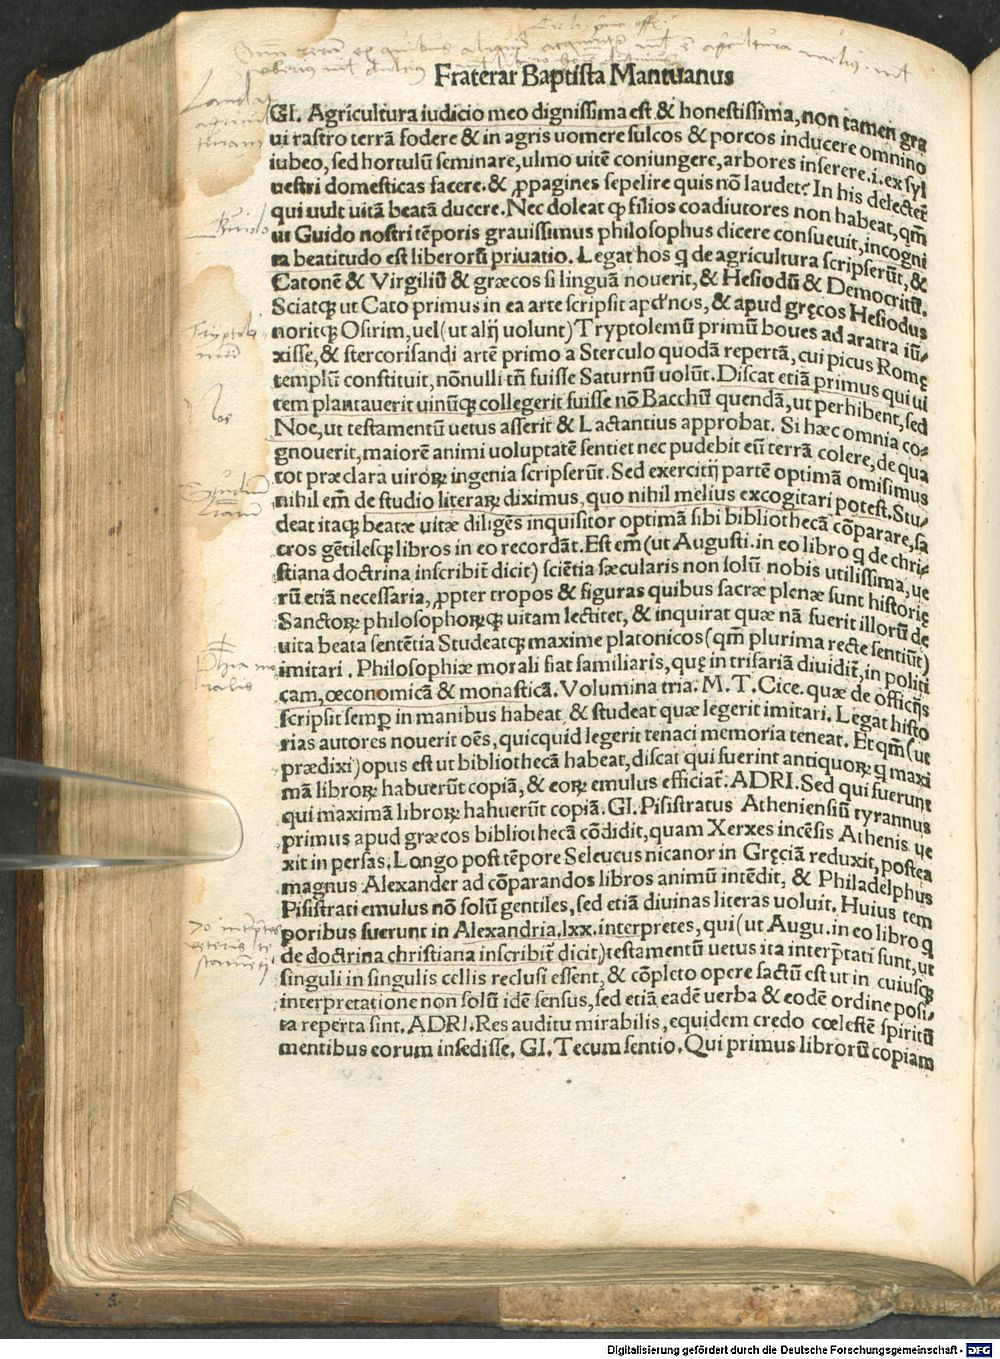 Fraterar Baptista Mantuanus
GI. Agricultura iudicio meo dignissima est & honestissima, non tamen gra
ui rastro terrã fodere & in agris uomere sulcos & porcos inducere omnino
iubeo, sed hortulũ seminare, ulmo uitẽ coniungere, arbores inserere .i. ex syl
uestri domesticas facere. & ꝓpagines sepelire quis nõ laudet? In his delectet̃
qui uult uitã beatã ducere. Nec doleat ꝙ filios coadiutores non habeat, qm̃
ut Guido nostri tẽporis grauissimus philosophus dicere consueuit, incogni
ta beatitudo est liberorũ priuatio. Legat hos q̃ de agricultura scripserũt, &
Catonẽ & Virgiliũ & græcos si linguã nouerit, & Hesiodũ & Democritũ.
Sciatqꝫ ut Cato primus in ea arte scripsit apd̃ nos, & apud gręcos Hesiodus
noritqꝫ Osirim, uel (ut alij uolunt) Tryptolemũ primũ boues ad aratra iũ-
xisse, & stercorisandi artẽ primo a Sterculo quodã repertã, cui picus Romę
templũ constituit, nõnulli tñ fuisse Saturnũ uolũt. Discat etiã primus qui ui
tem plantauerit uinũqꝫ collegerit fuisse nõ Bacchũ quendã, ut perhibent, sed
Noe, ut testamentũ uetus asserit & Lactantius approbat. Si hæc omnia co-
gnouerit, maiorẽ animi uoluptatẽ sentiet nec pudebit eũ terrã colere, de qua
tot præclara uiroꝝ ingenia scripserũt. Sed exercitij partẽ optimã omisimus
nihil em̃ de studio literaꝝ diximus, quo nihil melius excogitari potest. Stu-
deat itaqꝫ beatæ uitæ diligẽs inquisitor optimã sibi bibliothecã cõparare, sa
cros gẽtilesqꝫ libros in eo recordãt. Est em̃ (ut Augusti. in eo libro q̃ de chri-
stiana doctrina inscribit̃ dicit) sciẽtia sæcularis non solũ nobis utilissima, ue
rũ etiã necessaria, ꝓpter tropos & figuras quibus sacræ plenæ sunt historię
Sanctoꝝ philosophoꝝqꝫ uitam lectitet, & inquirat quæ nã fuerit illorũ de
uita beata sentẽtia Studeatqꝫ maxime platonicos (qm̃ plurima recte sentiũt)
imitari. Philosophiæ morali fiat familiaris, quę in trifariã diuidit̃, in politi
cam, œconomicã & monasticã. Volumina tria. M. T. Cice. quæ de officijs
scripsit semꝑ in manibus habeat & studeat quæ legerit imitari. Legat histo
rias autores nouerit oẽs, quicquid legerit tenaci memoria teneat. Et qm̃ (ut
prædixi) opus est ut bibliothecã habeat, discat qui fuerint antiquoꝝ q̃ maxi
mã libroꝝ habuerũt copiã, & eoꝝ emulus efficiat̃. ADRI. Sed qui fuerunt
qui maximã libroꝝ hahuerũt copiã. GI. Pisistratus Atheniensiũ tyrannus
primus apud græcos bibliothecã cõdidit, quam Xerxes incẽsis Athenis ue
xit in persas. Longo post tẽpore Seleucus nicanor in Gręciã reduxit, postea
magnus Alexander ad cõparandos libros animũ intẽdit, & Philadelphus
Pisistrati emulus nõ solũ gentiles, sed etiã diuinas literas uoluit. Huius tem
poribus fuerunt in Alexandria .lxx. interpretes, qui (ut Augu. in eo libro q̃
de doctrina christiana inscribit̃ dicit) testamentũ uetus ita interp̃tati sunt, ut
singuli in singulis cellis reclusi essent, & cõpleto opere factũ est ut in cuiusqꝫ
interpretatione non solũ idẽ sensus, sed etiã eadẽ uerba & eodẽ ordine posi-
ta reperta sint. ADRI. Res auditu mirabilis, equidem credo cœlestẽ spiritũ
mentibus eorum insedisse. GI. Tecum sentio. Qui primus librorũ copiam
Guido
Noe
Digitalisierung gefördert durch die Deutsche Forschungsgemeinschaft - DFG